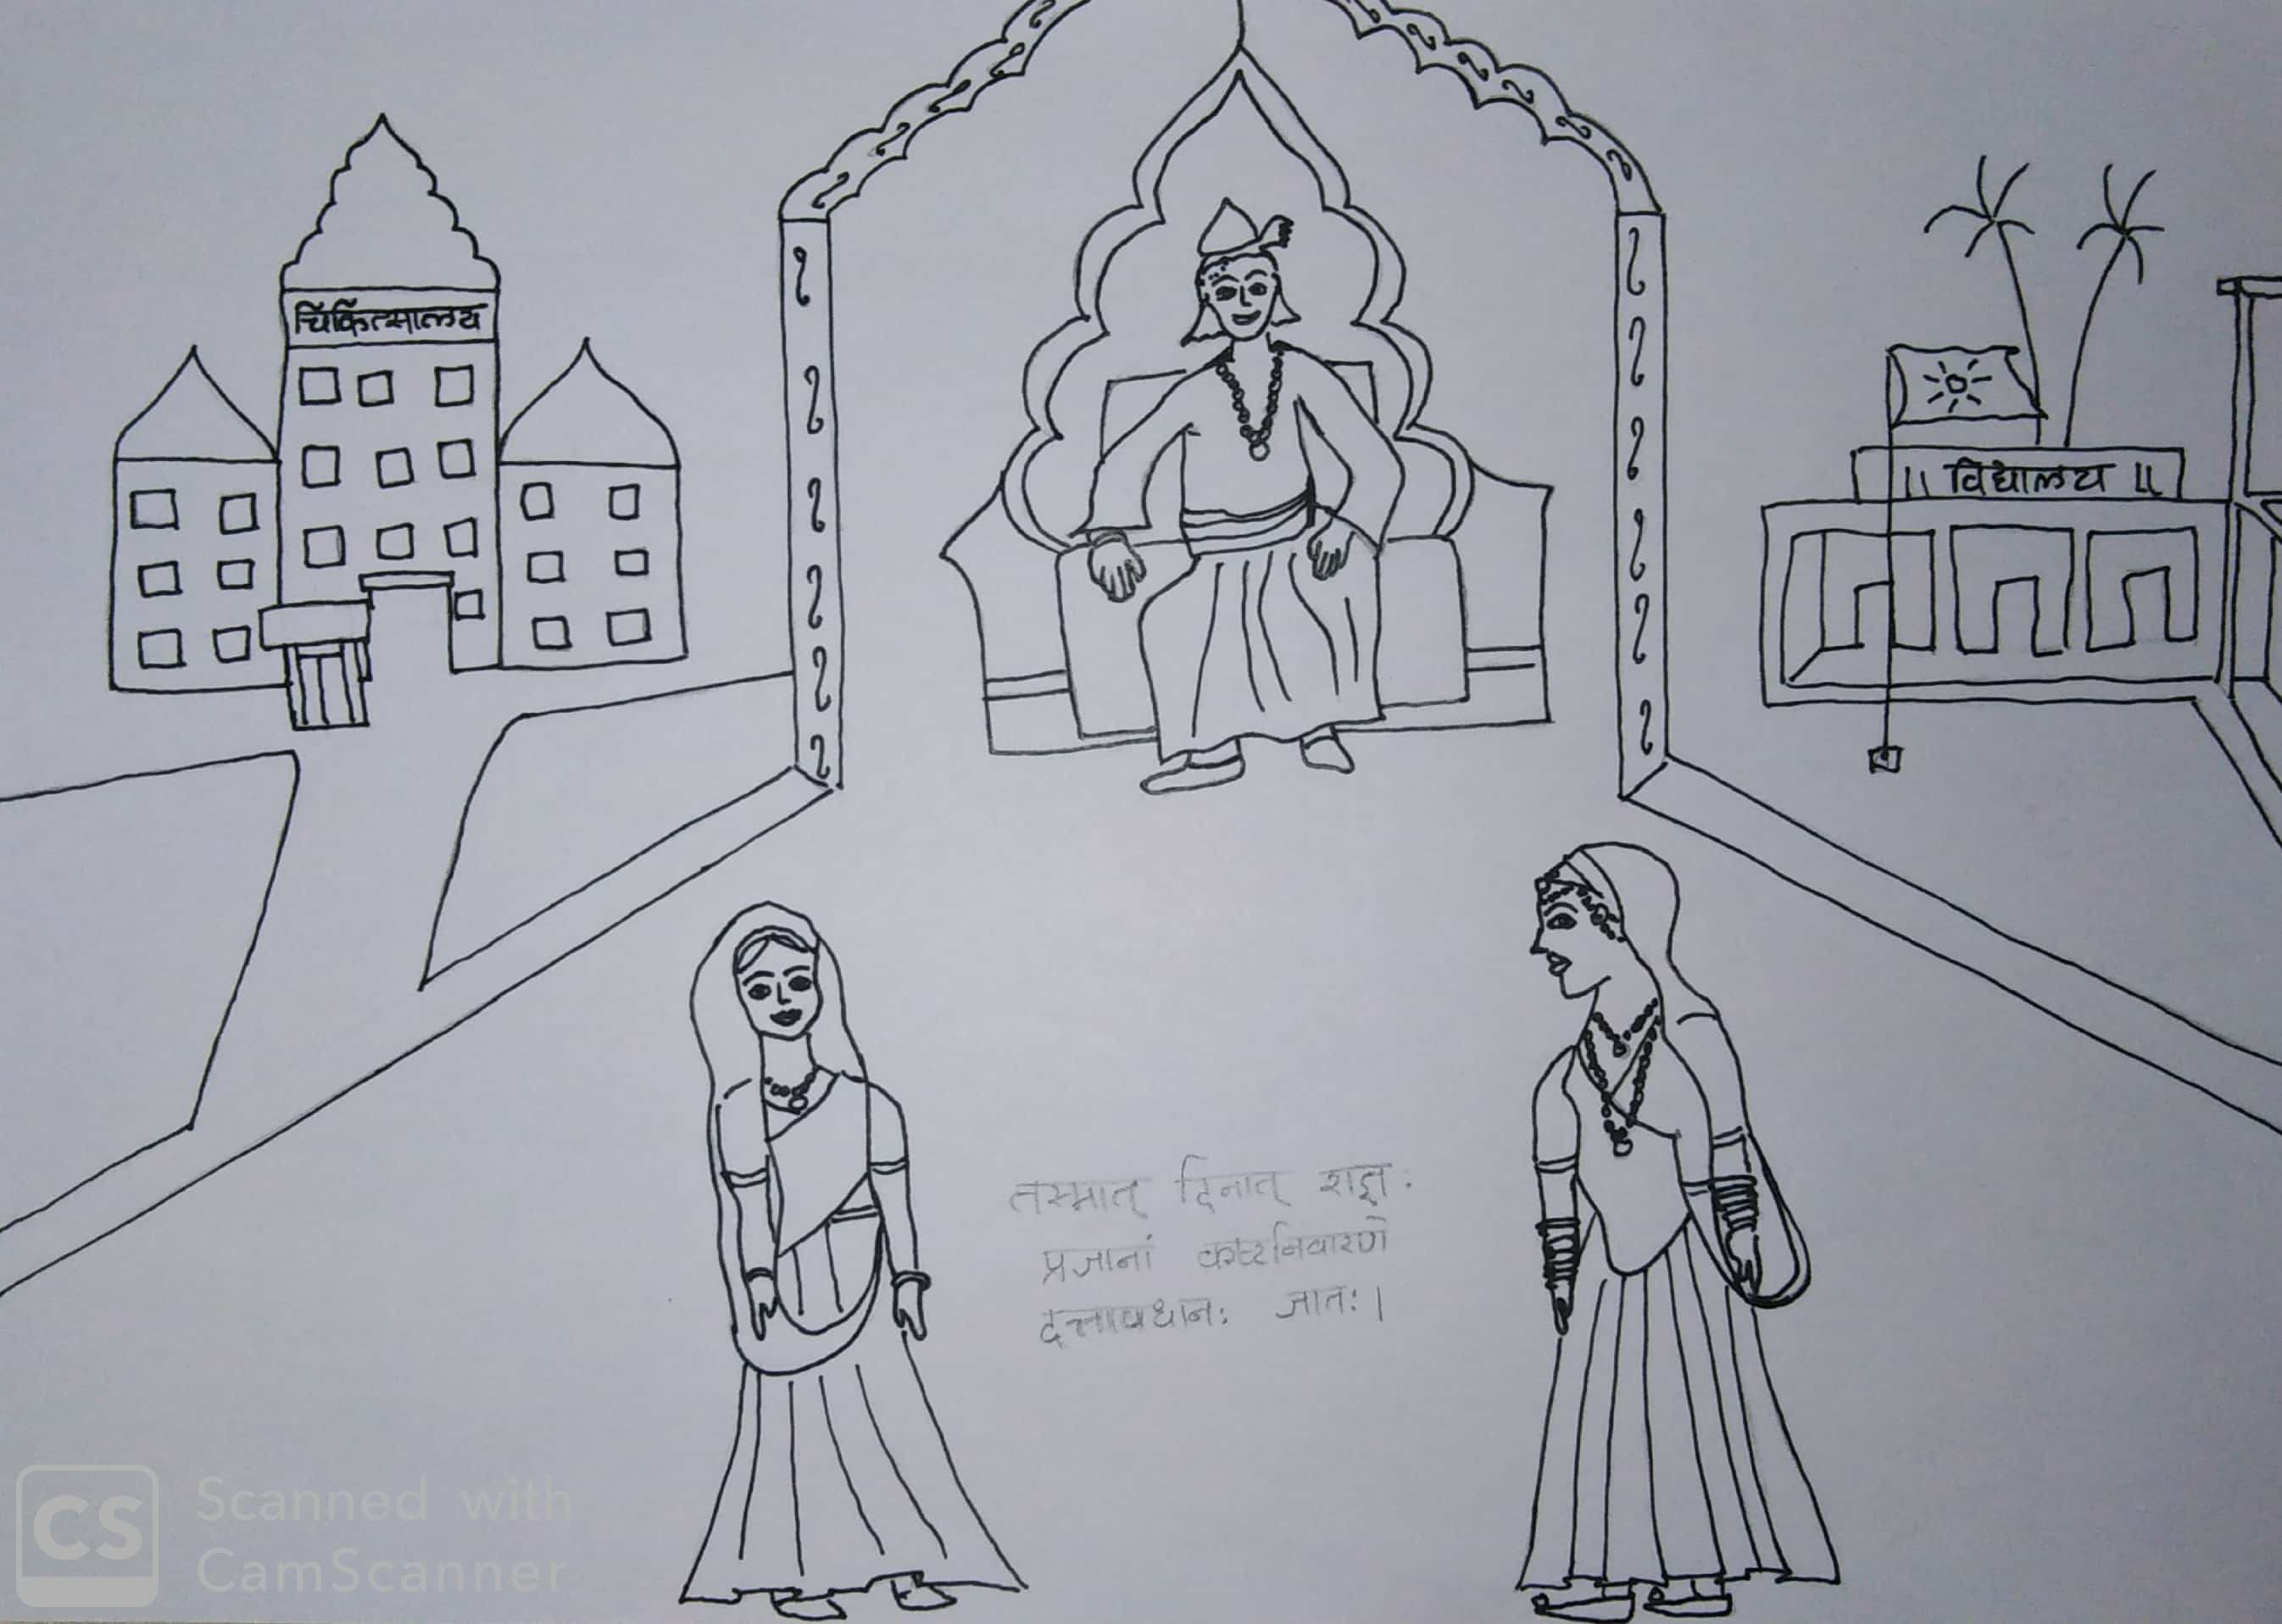 चिकित्सालय
॥ विद्यालय ॥
तस्मात् दिनात् राज्ञः
प्रजानां कष्टनिवारणे
दत्तावधानः जातः।
CS
Scanned with
CamScanner